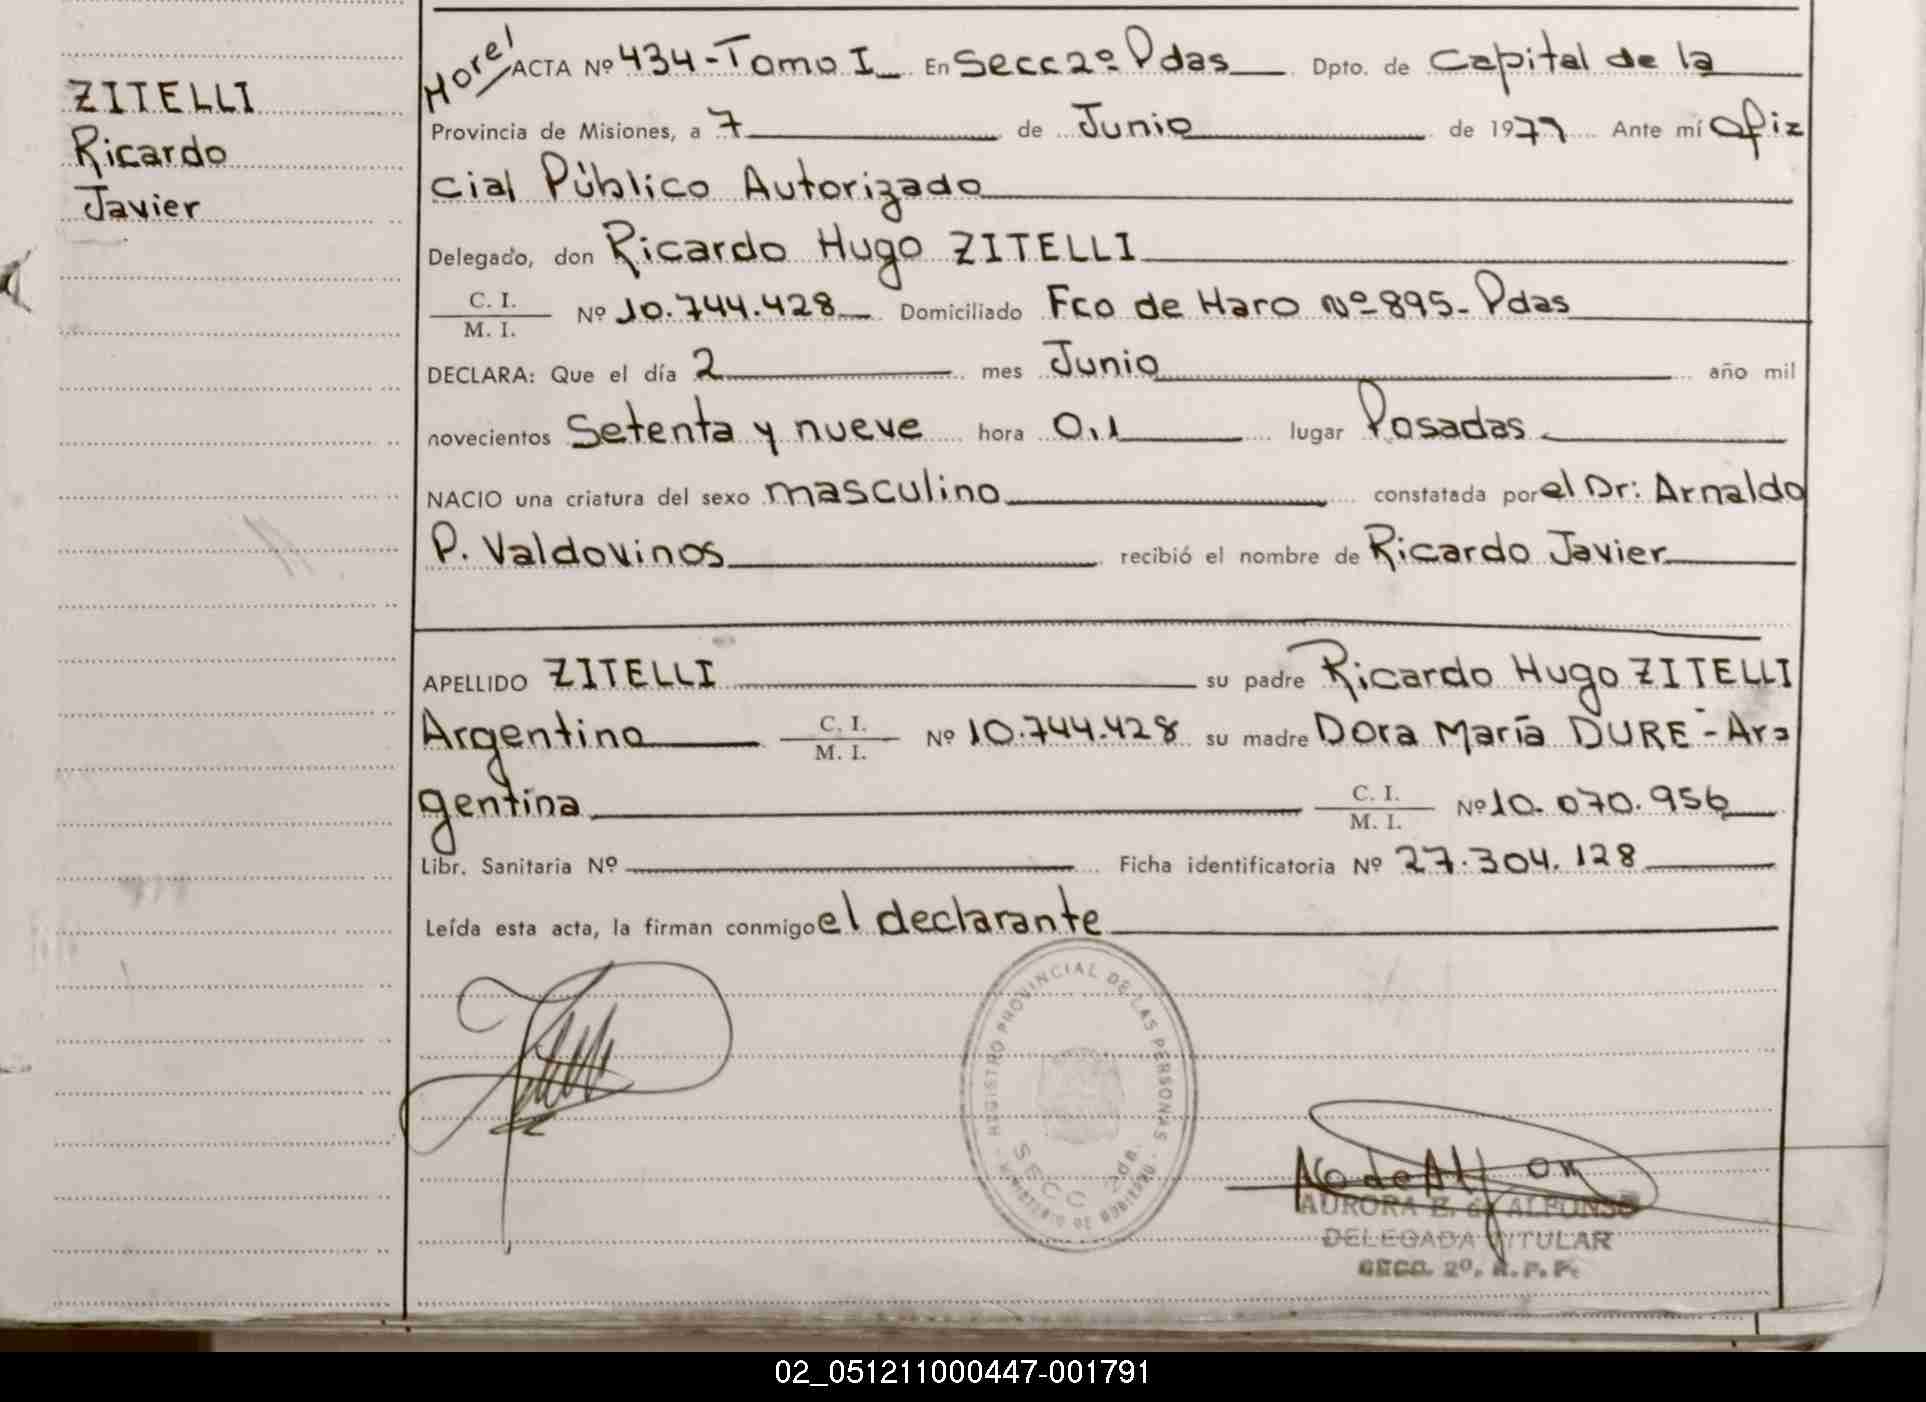 ZITELLI
Ricardo
Javier
ACTA Nº 434-Tomo I En Secc 2º Pdas Dpto. de Capital de la
Provincia de Misiones, a 7 de Junio de 1979 Ante mí Ofi
cial Público Autorizado
Delegado, don Ricardo Hugo ZITELLI
C. I.
M. I. Nº 10.744.428 Domiciliado Fco de Haro Nº 895- Pdas
DECLARA: Que el día 2 mes Junio año mil
novecientos Setenta y nueve hora 0,1 lugar Posadas
NACIO una criatura del sexo masculino constatada por el Dr: Arnaldo
P. Valdovinos recibió el nombre de Ricardo Javier
APELLIDO ZITELLI su padre Ricardo Hugo ZITELLI
Argentino C. I.
M. I. Nº 10.744.428 su madre Dora María DURE - Ar=
gentina C. I.
M. I. Nº 10.070.956
Libr. Sanitaria Nº Ficha identificatoria Nº 27.304.128
Leída esta acta, la firman conmigo el declarante
REGISTRO PROVINCIAL DE LAS PERSONAS
SECC 2da.
MINISTERIO DE GOBIERNO
AURORA E. de ALFONSO
DELEGADA TITULAR
SECC. 2º. R. P. P.
02_051211000447-001791